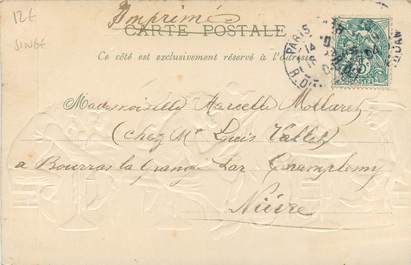 12€
SINGE
Imprimé
CARTE POSTALE
Ce côté est exclusivement réservé à l'adresse
PARIS
14
R. D
Mademoiselle Marcelle Mollaret
(chez Mr Louis Vallet)
à Bourras la Grange par Champlemy
Nièvre